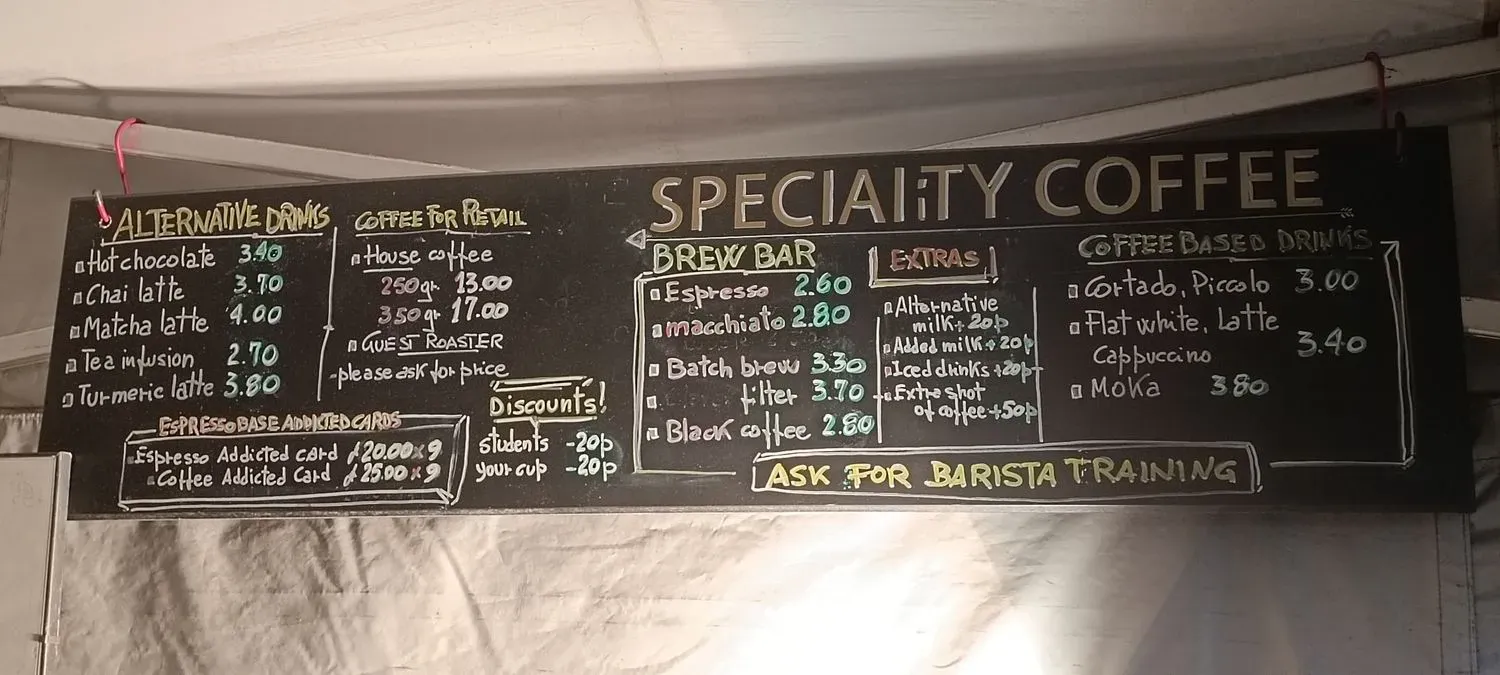 SPECIAlITY COFFEE
ALTERNATIVE DRINKS
Hot chocolate 3.40
Chai latte 3.70
Matcha latte 4.00
Tea infusion 2.70
Turmeric latte 3.80
COFFEE FOR RETAIL
House coffee
250gr 13.00
350gr 17.00
GUEST ROASTER
-please ask for price
ESPRESSO BASE ADDICTED CARDS
Espresso Addicted card £20.00 x 9
Coffee Addicted Card £25.00 x 9
Discounts!
students -20p
your cup -20p
BREW BAR
Espresso 2.60
macchiato 2.80
Batch brew 3.30
filter 3.70
Black coffee 2.80
EXTRAS
Alternative
milk+20p
Added milk+20p
Iced drinks+20p
Extra shot
of coffee+50p
COFFEE BASED DRINKS
Cortado, Piccolo 3.00
Flat white, Latte
Cappuccino 3.40
MOKA 3.80
ASK FOR BARISTA TRAINING